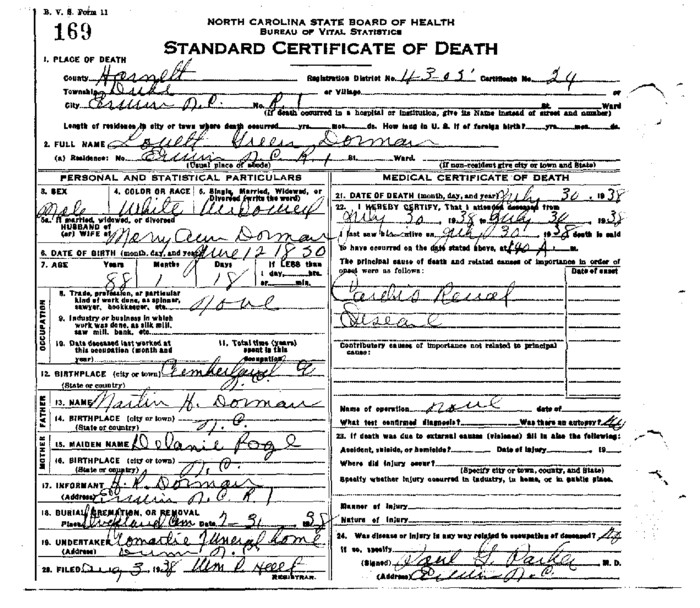 B. V. S. Form 11
169
NORTH CAROLINA STATE BOARD OF HEALTH
BUREAU OF VITAL STATISTICS
STANDARD CERTIFICATE OF DEATH
1. PLACE OF DEATH
County Harnett Registration District No. 4305 Certificate No. 24
Township Duke or Village or
City Erwin N.C. No. R. 1 St. Ward
(If death occurred in a hospital or institution, give its Name instead of street and number)
Length of residence in city or town where death occurred yrs. mos. ds. How long in U. S. if of foreign birth? yrs. mos. ds.
2. FULL NAME Lovett Green Dorman
(a) Residence: No. Erwin N.C. R. 1 St. Ward.
(Usual place of abode) (If non-resident give city or town and State)
PERSONAL AND STATISTICAL PARTICULARS
3. SEX 4. COLOR OR RACE 5. Single, Married, Widowed, or Divorced (write the word)
Male White Widowed
5a. If married, widowed or divorced
HUSBAND of
(or) WIFE of Mary Ann Dorman
6. DATE OF BIRTH (month, day, and year) June 12 1850
7. AGE Years Months Days If LESS than
1 day, hrs.
or min.
88 1 18
OCCUPATION
8. Trade, profession, or particular
kind of work done, as spinner,
sawyer, bookkeeper, etc. None
9. Industry or business in which
work was done, as silk mill,
saw mill, bank, etc.
10. Date deceased last worked at
this occupation (month and
year)
11. Total time (years)
spent in this
occupation
12. BIRTHPLACE (city or town) Cumberland Co
(State or country) N.C.
FATHER
13. NAME Martin H. Dorman
14. BIRTHPLACE (city or town)
(State or country) N.C.
MOTHER
15. MAIDEN NAME Delanie Pope
16. BIRTHPLACE (city or town)
(State or country) N.C.
17. INFORMANT H. R. Dorman
(Address) Erwin N.C. R. 1
18. BURIAL, CREMATION, OR REMOVAL
Place Cem Date 7-31 1938
19. UNDERTAKER Funeral Home
(Address) Dunn N.C.
20. FILED Aug 3, 1938 Wm P. Holt
REGISTRAR.
MEDICAL CERTIFICATE OF DEATH
21. DATE OF DEATH (month, day, and year) July 30, 1938
22. I HEREBY CERTIFY, That I attended deceased from
July 30, 1938 to July 30, 1938
I last saw h alive on July 30, 1938 death is said
to have occurred on the date stated above, at A. m.
The principal cause of death and related causes of importance in order of
onset were as follows:
Date of onset
Cardio Renal
Disease
Contributory causes of importance not related to principal
cause:
Name of operation none date of
What test confirmed diagnosis? Was there an autopsy? No
23. If death was due to external causes (violence) fill in also the following:
Accident, suicide, or homicide? Date of injury , 19
Where did injury occur?
(Specify city or town, county, and State)
Specify whether injury occurred in industry, in home, or in public place.
Manner of injury
Nature of injury
24. Was disease or injury in any way related to occupation of deceased? No
If so, specify
(Signed) Paul G. Parker M. D.
(Address) Erwin N.C.